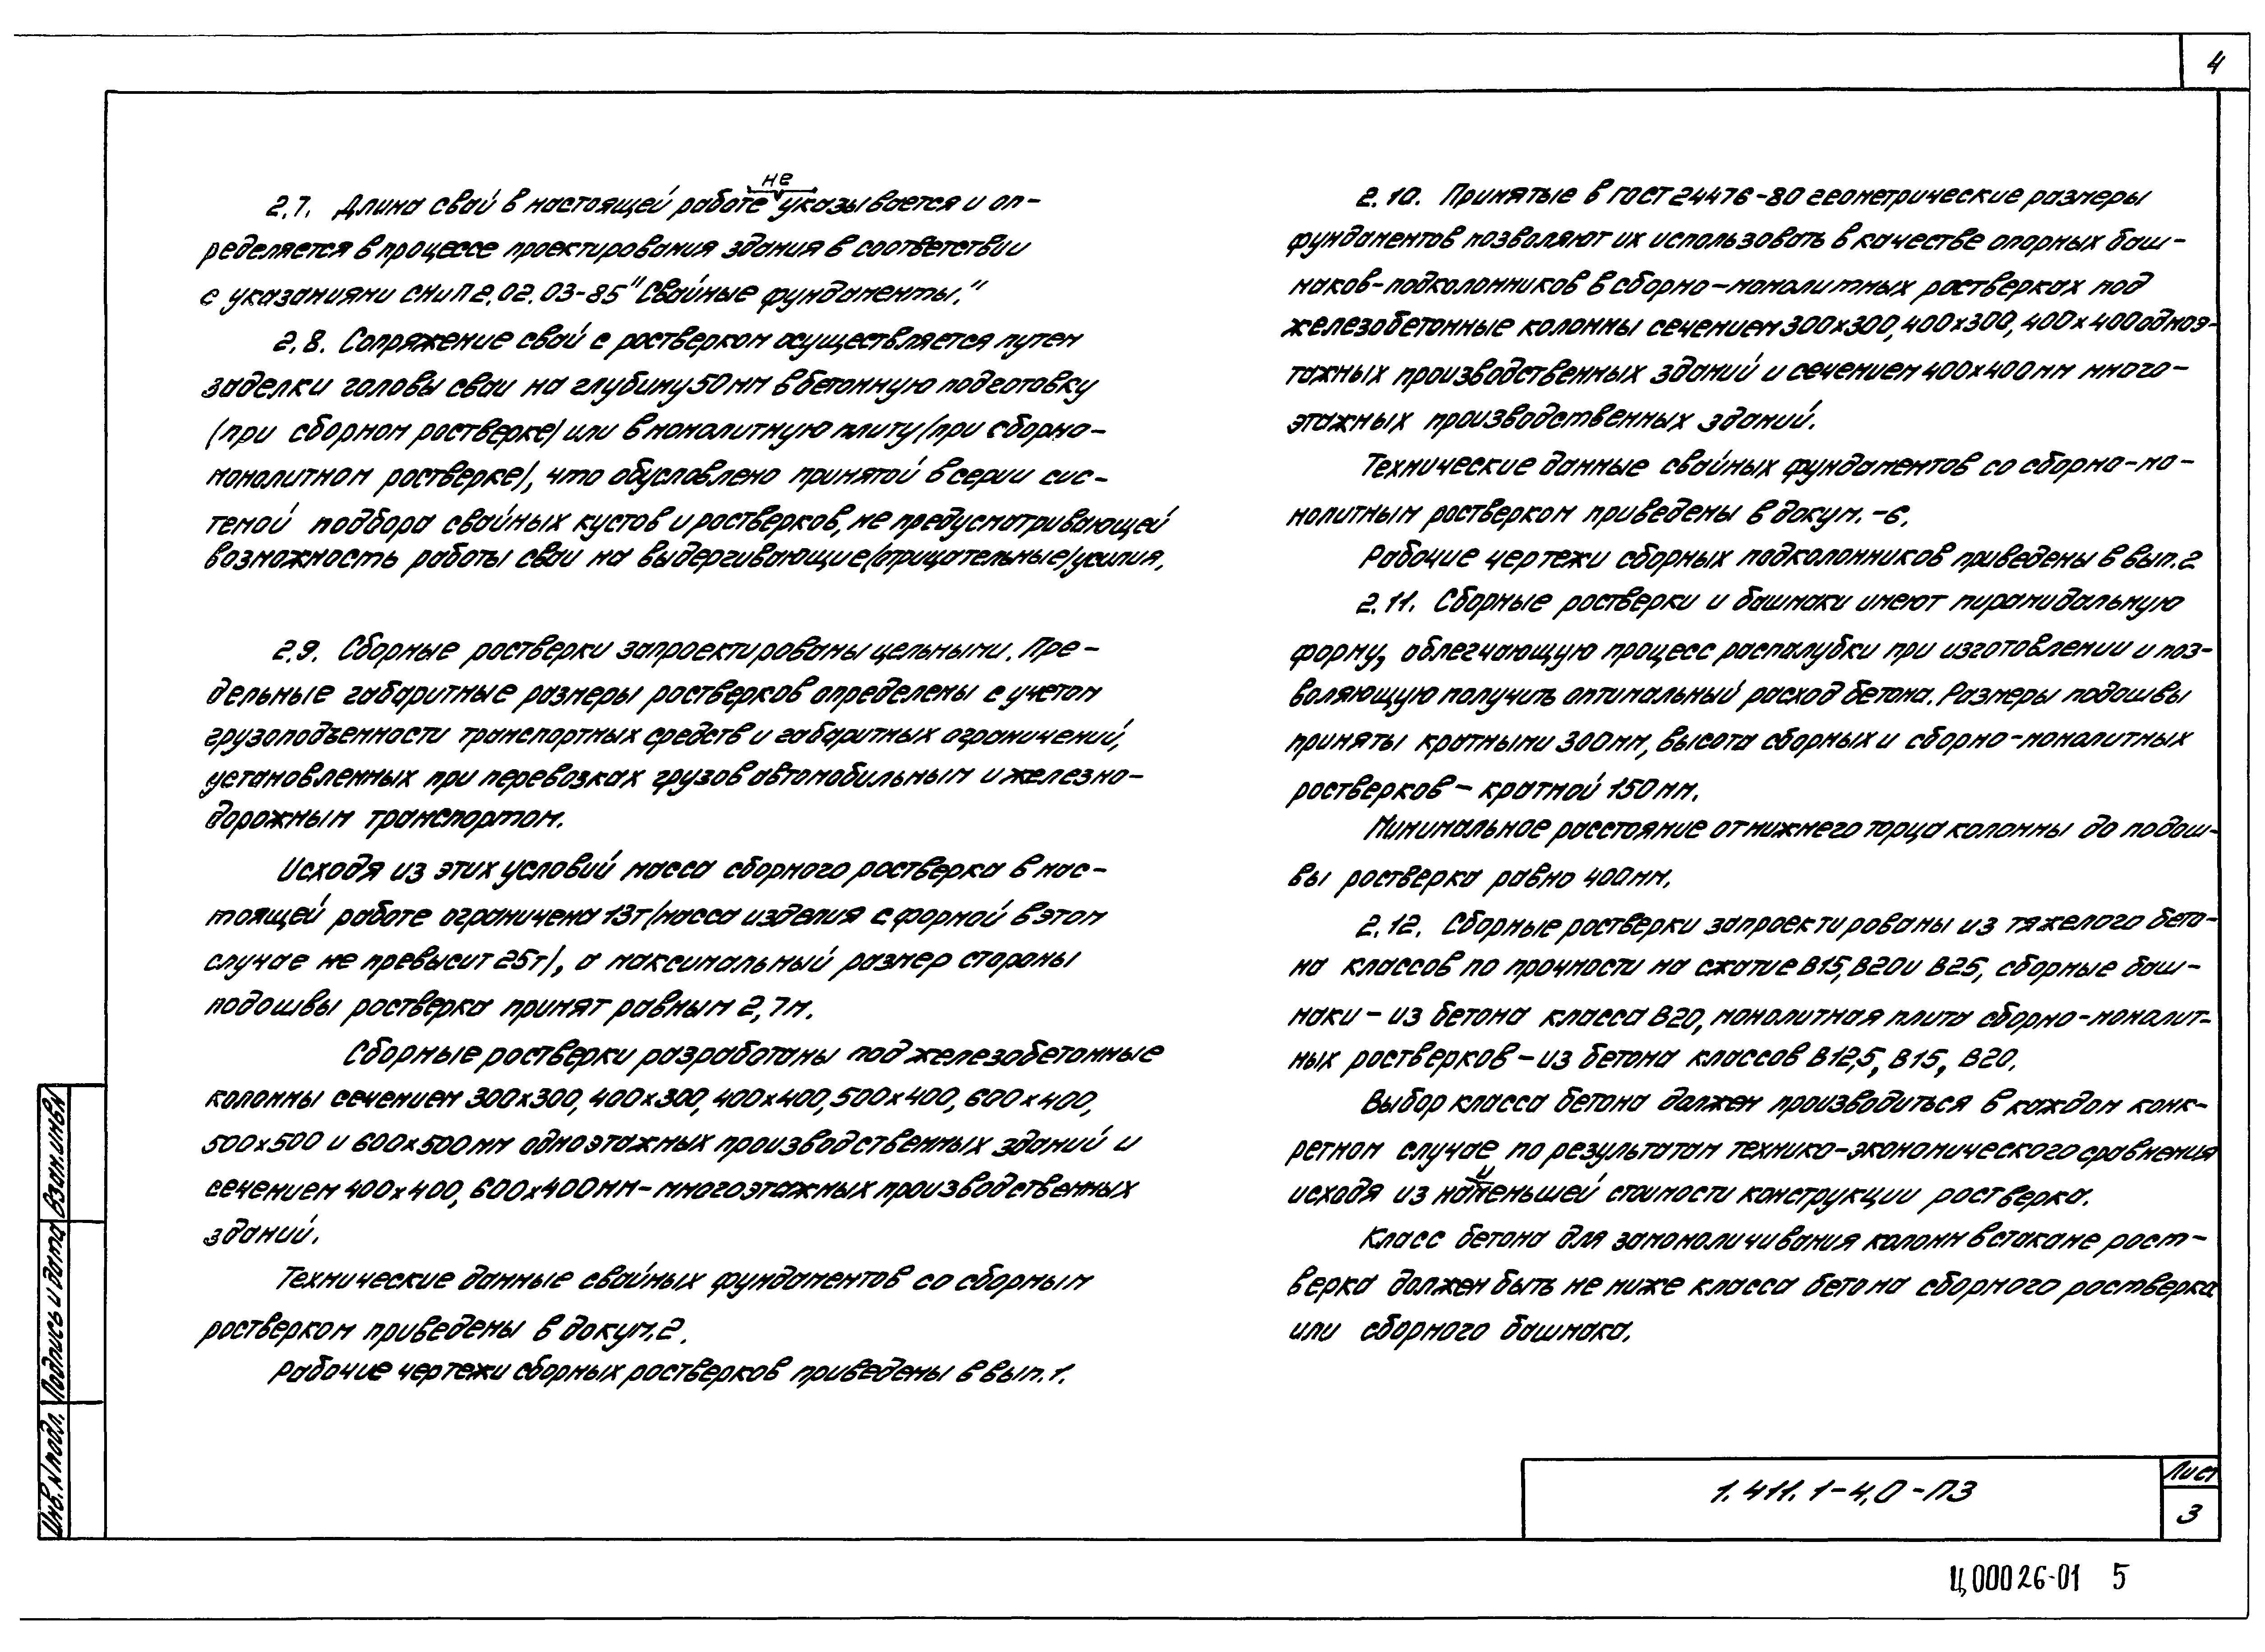 4
2.7. Длина свай в настоящей работе не указывается и оп-
ределяется в процессе проектирования здания в соответствии
с указаниями СНиП 2.02.03-85 "Свайные фундаменты."
2.8. Сопряжение свай с ростверком осуществляется путем
заделки головы сваи на глубину 50 мм в бетонную подготовку
(при сборном ростверке) или в монолитную плиту (при сборно-
монолитном ростверке), что обусловлено принятой в серии сис-
темой подбора свайных кустов и ростверков, не предусматривающей
возможность работы сваи на выдергивающие (отрицательные) усилия.
2.9. Сборные ростверки запроектированы цельными. Пре-
дельные габаритные размеры ростверков определены с учетом
грузоподъемности транспортных средств и габаритных ограничений,
установленных при перевозках грузов автомобильным и железно-
дорожным транспортом.
Исходя из этих условий масса сборного ростверка в нас-
тоящей работе ограничена 13т (масса изделия с формой в этом
случае не превысит 25т), а максимальный размер стороны
подошвы ростверка принят равным 2,7м.
Сборные ростверки разработаны под железобетонные
колонны сечением 300х300, 400х300, 400х400, 500х400, 600х400,
500х500 и 600х500мм одноэтажных производственных зданий и
сечением 400х400, 600х400мм-многоэтажных производственных
зданий.
Технические данные свайных фундаментов со сборным
ростверком приведены в докум.2.
Рабочие чертежи сборных ростверков приведены в вып.1.
2.10. Принятые в ГОСТ 24476-80 геометрические размеры
фундаментов позволяют их использовать в качестве опорных баш-
маков-подколонников в сборно-монолитных ростверках под
железобетонные колонны сечением 300х300, 400х300, 400х400 одноэ-
тажных производственных зданий и сечением 400х400мм много-
этажных производственных зданий.
Технические данные свайных фундаментов со сборно-мо-
нолитным ростверком приведены в докум.-6.
Рабочие чертежи сборных подколонников приведены в вып.2
2.11. Сборные ростверки и башмаки имеют пирамидальную
форму, облегчающую процесс распалубки при изготовлении и поз-
воляющую получить оптимальный расход бетона. Размеры подошвы
приняты кратными 300мм, высота сборных и сборно-монолитных
ростверков - кратной 150мм.
Минимальное расстояние от нижнего торца колонны до подош-
вы ростверка равно 400мм.
2.12. Сборные ростверки запроектированы из тяжелого бето-
на классов по прочности на сжатие В15, В20 и В25, сборные баш-
маки - из бетона класса В20, монолитная плита сборно-монолит-
ных ростверков - из бетона классов В12,5, В15, В20.
Выбор класса бетона должен производиться в каждом конк-
ретном случае по результатам технико-экономического сравнения
исходя из наименьшей стоимости конструкции ростверка.
Класс бетона для замоноличивания колонн в стакане рост-
верка должен быть не ниже класса бетона сборного ростверка
или сборного башмака.
Взам.инв.N
Подпись и дата
Инв.N подл.
1.411.1-4.0-ПЗ
Лист
3
Ц00026-01 5